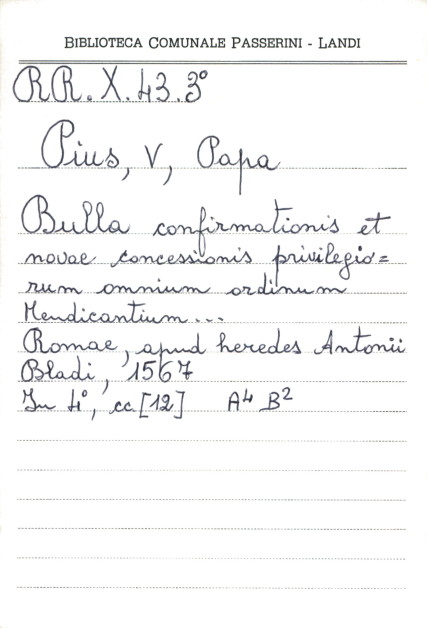 BIBLIOTECA COMUNALE PASSERINI - LANDI
RR.X.43.3°
Pius, V, Papa
Bulla confirmationis et
novae concessionis privilegio=
rum omnium ordinum
Mendicantium...
Romae, apud heredes Antonii
Bladi, 1567
In 4°, cc.[12] A4 B2